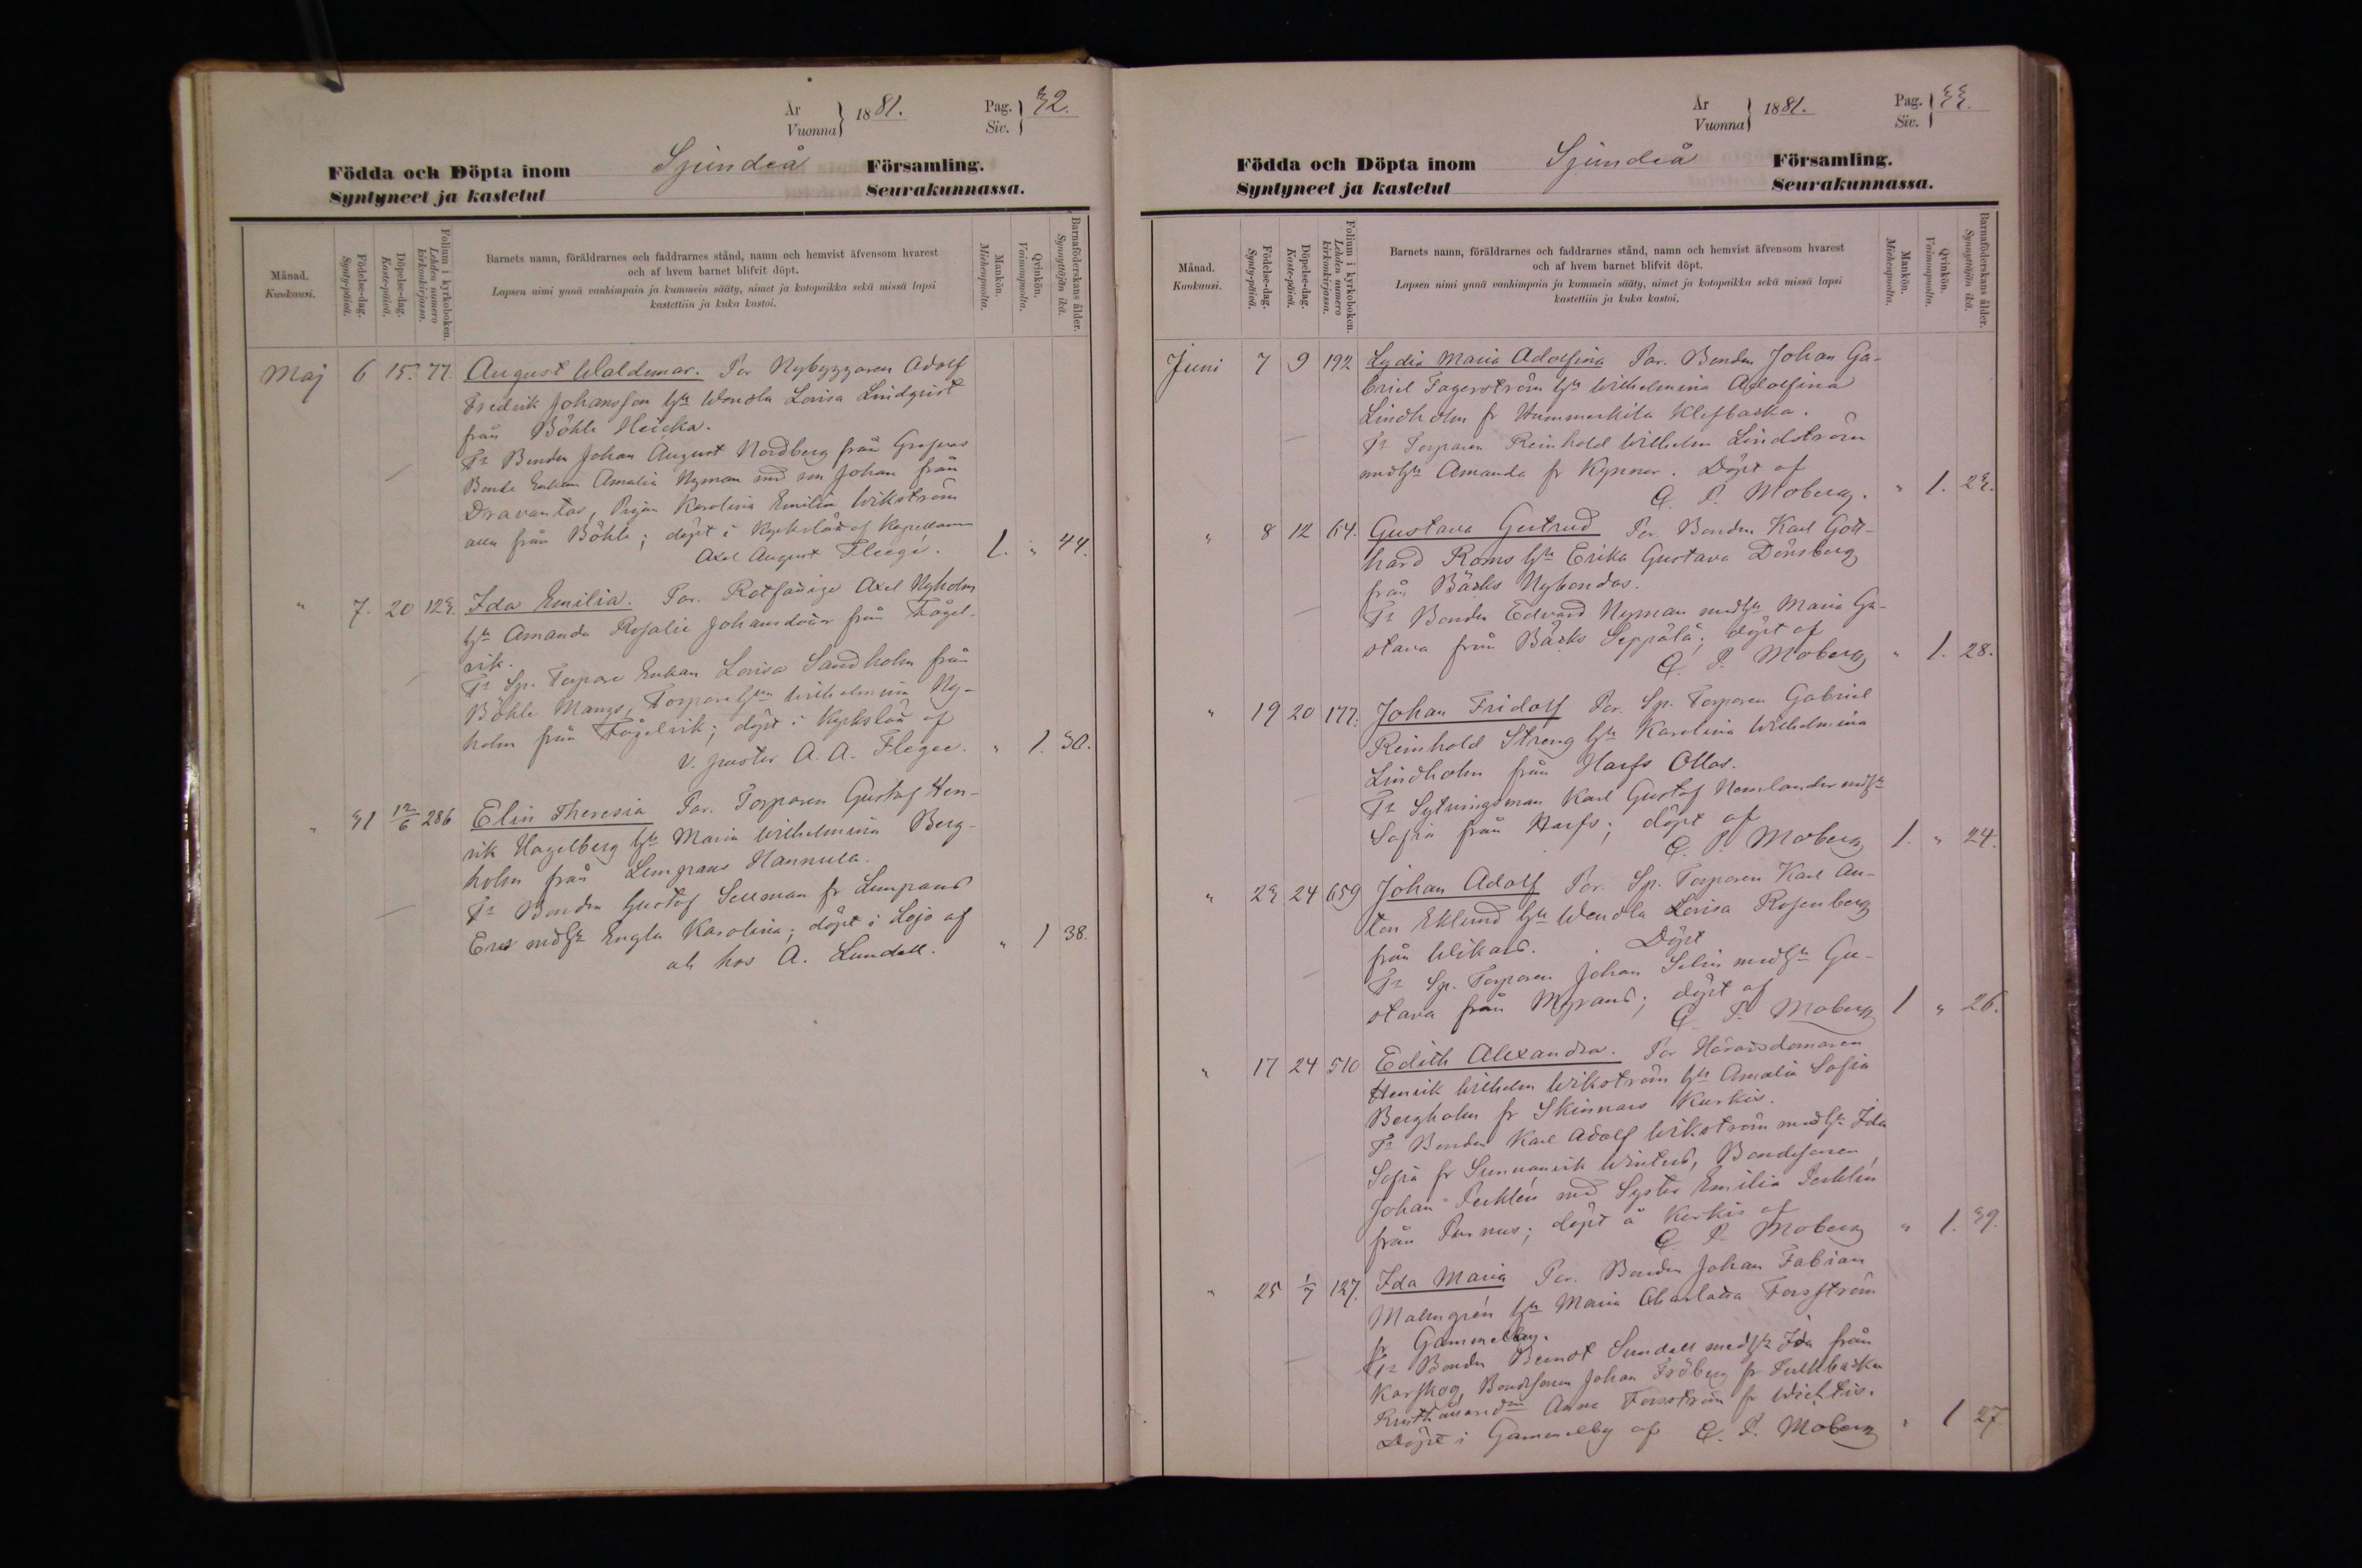 År
Vuonna } 1881.
Pag.
Siv. } 32.
Födda och Döpta inom Sjundeå Församling.
Syntyneet ja kastetut Seurakunnassa.
Månad.
Kuukausi.
Födelse-dag.
Synty-päivä.
Döpelse-dag.
Kaste-päivä.
Folium i kyrkoboken.
Lehden numero kirkonkirjassa.
Barnets namn, föräldrarnes och faddrarnes stånd, namn och hemvist äfvensom hvarest
och af hvem barnet blifvit döpt.
Lapsen nimi ynnä vanhimpain ja kummein sääty, nimet ja kotopaikka sekä missä lapsi
kastettiin ja kuka kastoi.
Mankön.
Miehenpuolta.
Qvinkön.
Vaimonpuolta.
Barnaföderskans ålder.
Synnyttäjän ikä.
Maj 6 15. 77. August Waldemar. Par Nybyggaren Adolf
Fredrik Johansson hu Wendla Lovisa Lindqvist
från Böhle Heicka.
Fr Bonden Johan August Nordberg från Grefvas
Bonde Enkan Amalia Nyman med son Johan från
Dravantas, Pigan Karolina Emilia Wikström
alla från Böhle; döpt i Kyrkslätt af Kapellanen
Axel August Flege. 1. " 44.
" 7. 20 123. Ida Emilia. Par. Rotfattige Axel Nyholm
hu Amanda Rosalie Johansdotter från Fågel-
vik.
Fr Sp. Torpare Enkan Lovisa Sandholm från
Böhle Mangs, Torpare hun Wilhelmina Ny-
holm från Fågelvik; döpt i Kyrkslätt af
v. pastor A. A. Flegee. " 1. 30.
" 31 12/6 286 Elin Theresia Par. Torparen Gustaf Hen-
rik Hagelberg hu Maria Wilhelmina Berg-
holm från Lempans Hannula.
Fr Bonden Gustaf Sellman fr Lempans
Ers med hu Engla Karolina; döpt i Lojo af
A. Lundell. " 1 38.
År
Vuonna } 1881.
Pag.
Siv. } 33.
Födda och Döpta inom Sjundeå Församling.
Syntyneet ja kastetut Seurakunnassa.
Månad.
Kuukausi.
Födelse-dag.
Synty-päivä.
Döpelse-dag.
Kaste-päivä.
Folium i kyrkoboken.
Lehden numero kirkonkirjassa.
Barnets namn, föräldrarnes och faddrarnes stånd, namn och hemvist äfvensom hvarest
och af hvem barnet blifvit döpt.
Lapsen nimi ynnä vanhimpain ja kummein sääty, nimet ja kotopaikka sekä missä lapsi
kastettiin ja kuka kastoi.
Mankön.
Miehenpuolta.
Qvinkön.
Vaimonpuolta.
Barnaföderskans ålder.
Synnyttäjän ikä.
Juni 7 9 192 Lydia Maria Adolfina Par. Bonden Johan Ga-
briel Fagerström hu Wilhelmina Adolfina
Lindholm fr Hummerkila Klefbacka.
Fr Torparen Reinhold Wilhelm Lindström
med hu Amanda fr Kynnar. Döpt af
G. P. Moberg. " 1. 23.
" 8 12 64. Gustava Gertrud Par. Bonden Karl Gott-
hard Roms hu Erika Gustava Dönsberg
från Bäcks Nybondas.
Fr Bonden Edvard Nyman med hu Maria Gu-
stava från Bäcks Seppälä; döpt af
G. P. Moberg " 1. 28.
" 19 20 177. Johan Fridolf Par. Sp. Torparen Gabriel
Reinhold Streng hu Karolina Wilhelmina
Lindholm från Harfs Ollas.
Fr Sytningsman Karl Gustaf Nemlander med hu
Sofia från Harfs; döpt af
G. P. Moberg 1. " 24.
" 23 24 659 Johan Adolf Par. Sp. Torparen Karl An-
ton Eklund hu Wendla Lovisa Rosenberg
från Wikars. Döpt
Fr Sp. Torparen Johan Selin med hu Gu-
stava från Myrans; döpt af
G. P. Moberg 1 " 26.
" 17 24 510 Edith Alexandra. Par Häradsdomaren
Henrik Wilhelm Wikström hu Amalia Sofia
Bergholm fr Skinnars Kurkis.
Fr Bonden Karl Adolf Wikström med hu Ida
Sofia fr Sunnanvik Winters, Bondesonen
Johan Perklén med Syster Emilia Perklén
från Purnus; döpt å Kurkis af
G. P. Moberg " 1. 39.
" 25 1/7 127. Ida Maria Par. Bonden Johan Fabian
Malmgrén hu Maria Charlotta Forsström
fr Gammelby.
Fr Bonden Berndt Sundell med hu Ida från
Karskog, Bondesonen Johan Fröberg fr Sullbacka
Anna Forsström fr Wichtis.
Döpt i Gammelby af G. P. Moberg " 1 27.